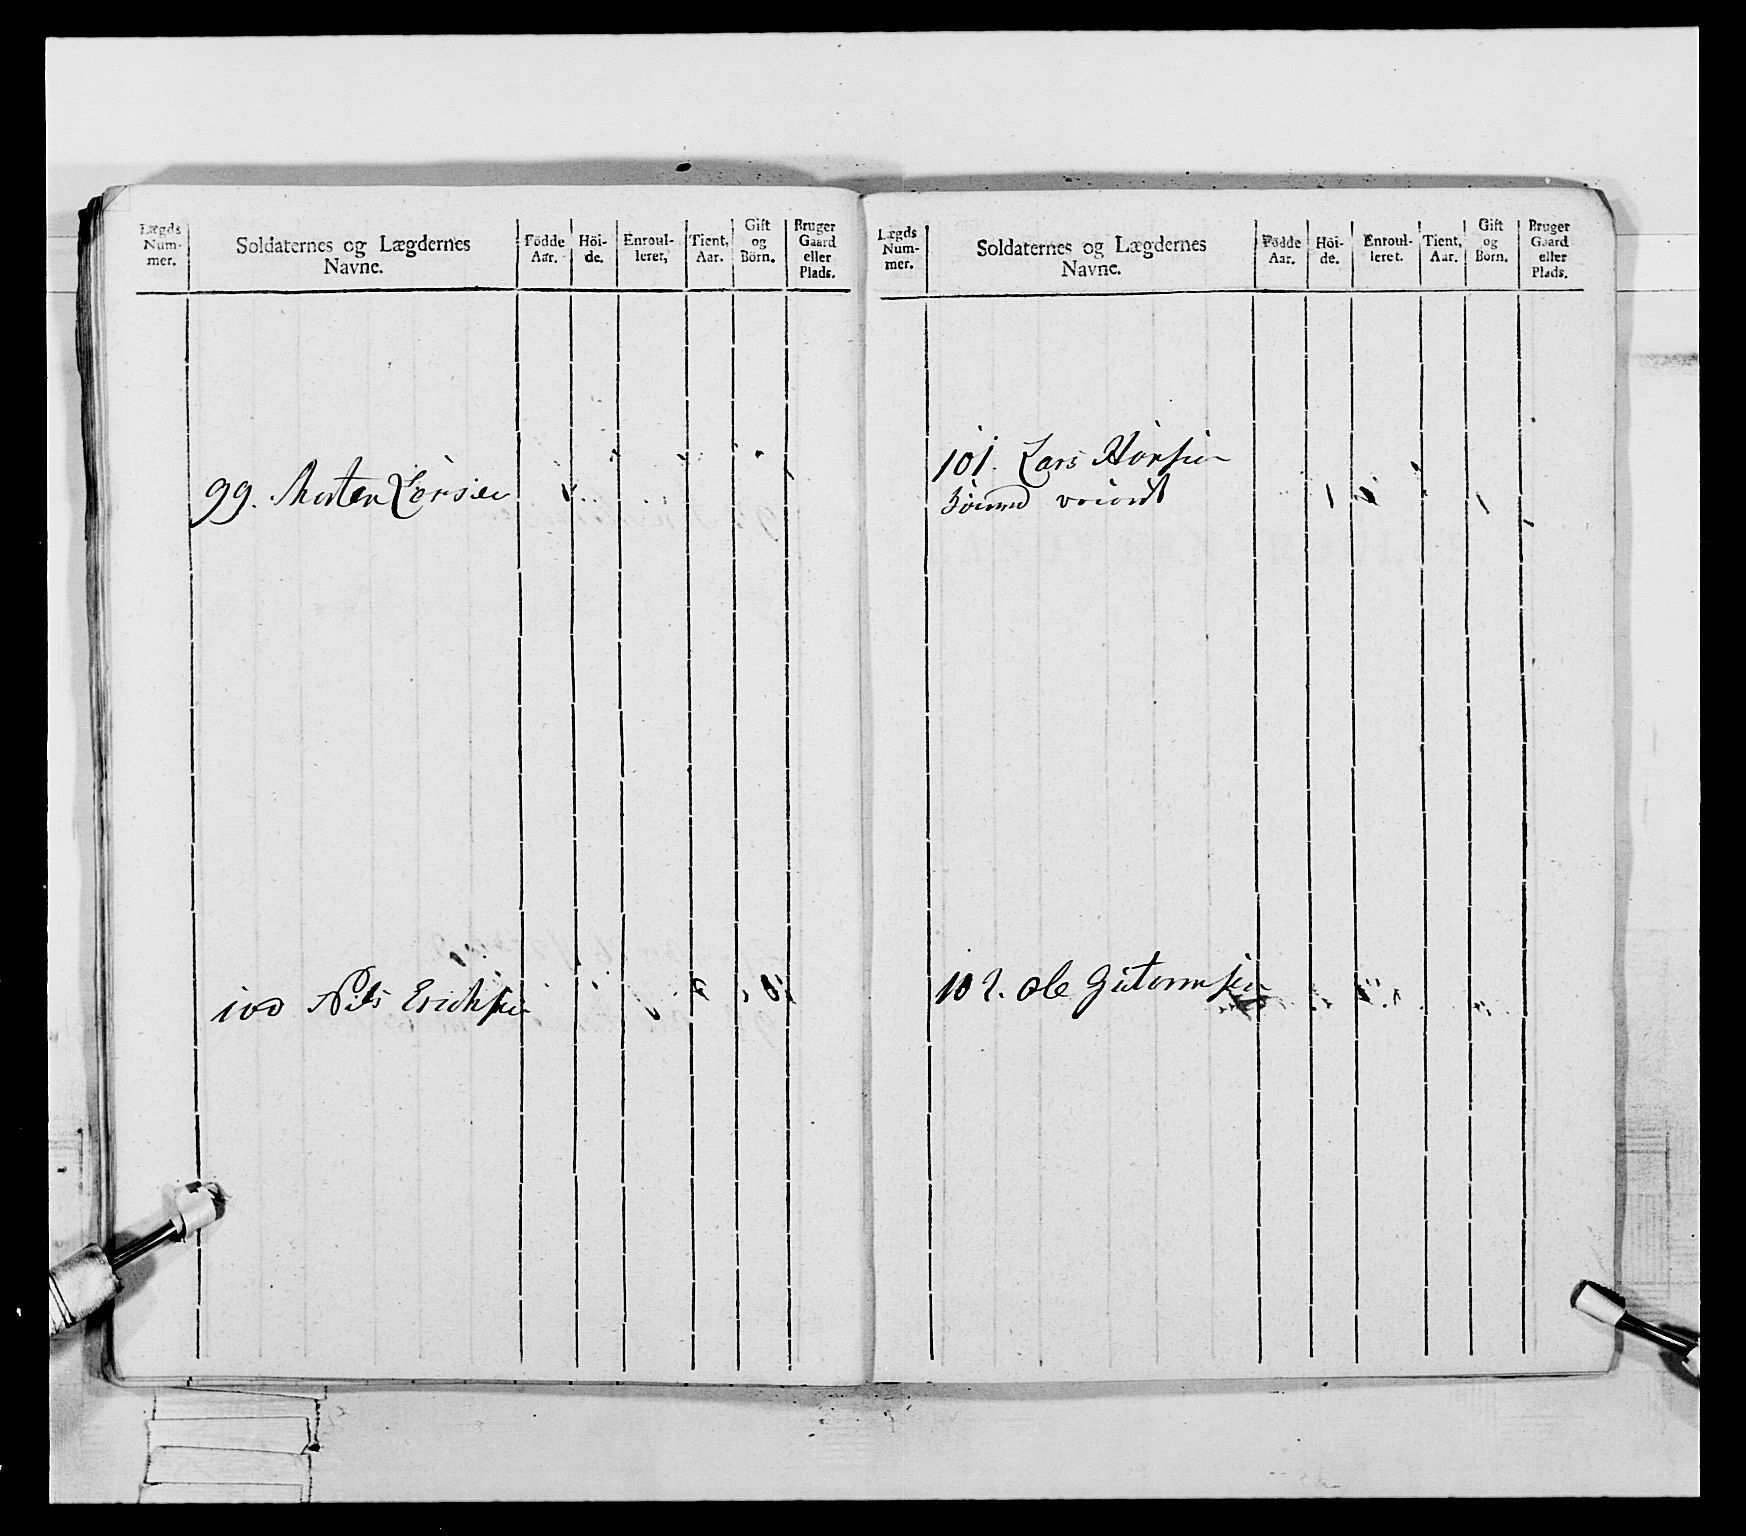 Lægds Num- mer.
Soldaternes og Lægdernes Navne.
Fødde Aar.
Höi- de.
Enroul- leret,
Tient, Aar.
Gift og Børn.
Bruger Gaard eller Plads.
99. Morten Larsen
100 Nils Erichsen
Lægds Num- mer.
Soldaternes og Lægdernes Navne.
Fødde Aar.
Höi- de.
Enroul- leret.
Tient, Aar.
Gift og Børn.
Bruger Gaard eller Plads.
101. Lars
102. Ole Gutormsen